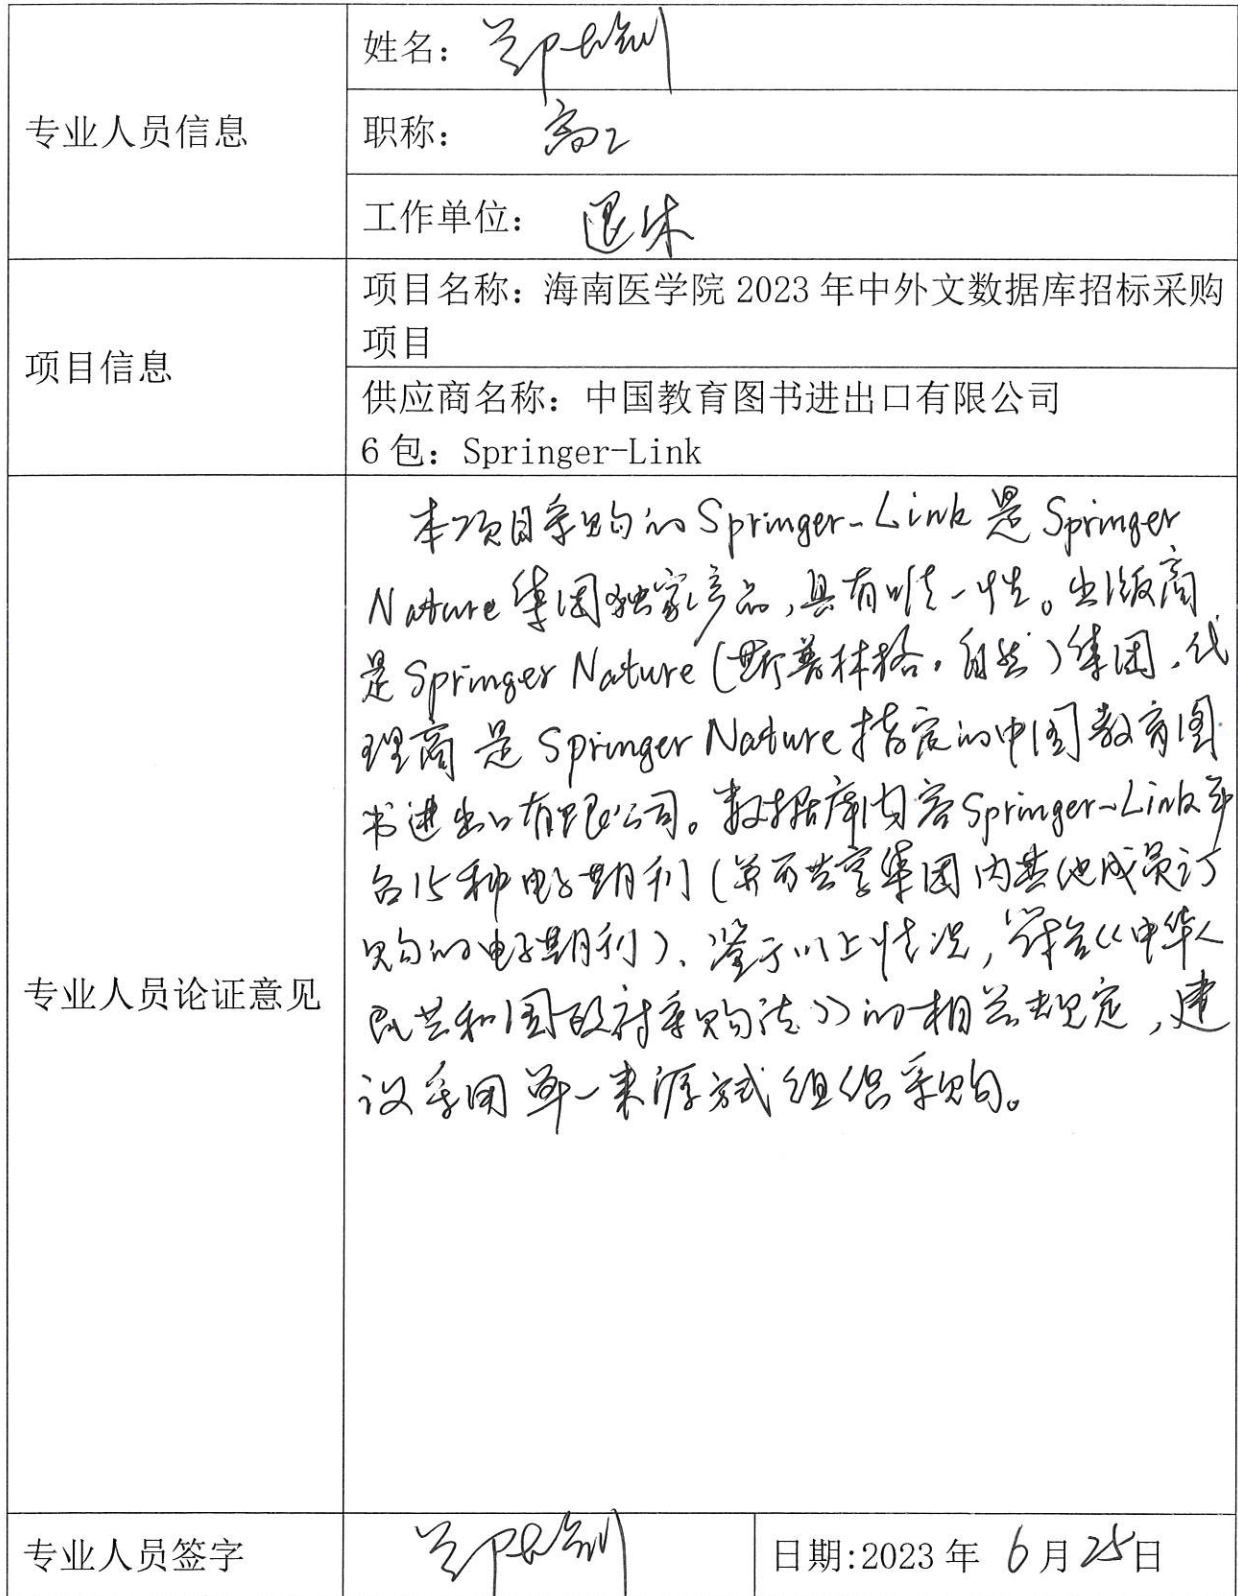 专业人员信息
姓名：郑
职称：高工
工作单位：退休
项目信息
项目名称：海南医学院 2023 年中外文数据库招标采购
项目
供应商名称：中国教育图书进出口有限公司
6 包：Springer-Link
专业人员论证意见
本项目采购的Springer-Link是Springer
Nature集团独家产品，具有唯一性。出版商
是Springer Nature（斯普林格·自然）集团，代
理商是Springer Nature指定的中国教育图
书进出口有限公司。数据库内容Springer-Link平
台15种电子期刊（并可共享集团内其他成员订
购的电子期刊）、鉴于以上情况，符合《中华人
民共和国政府采购法》的相关规定，建
议采用单一来源方式组织采购。
专业人员签字
郑
日期:2023 年 6月25日